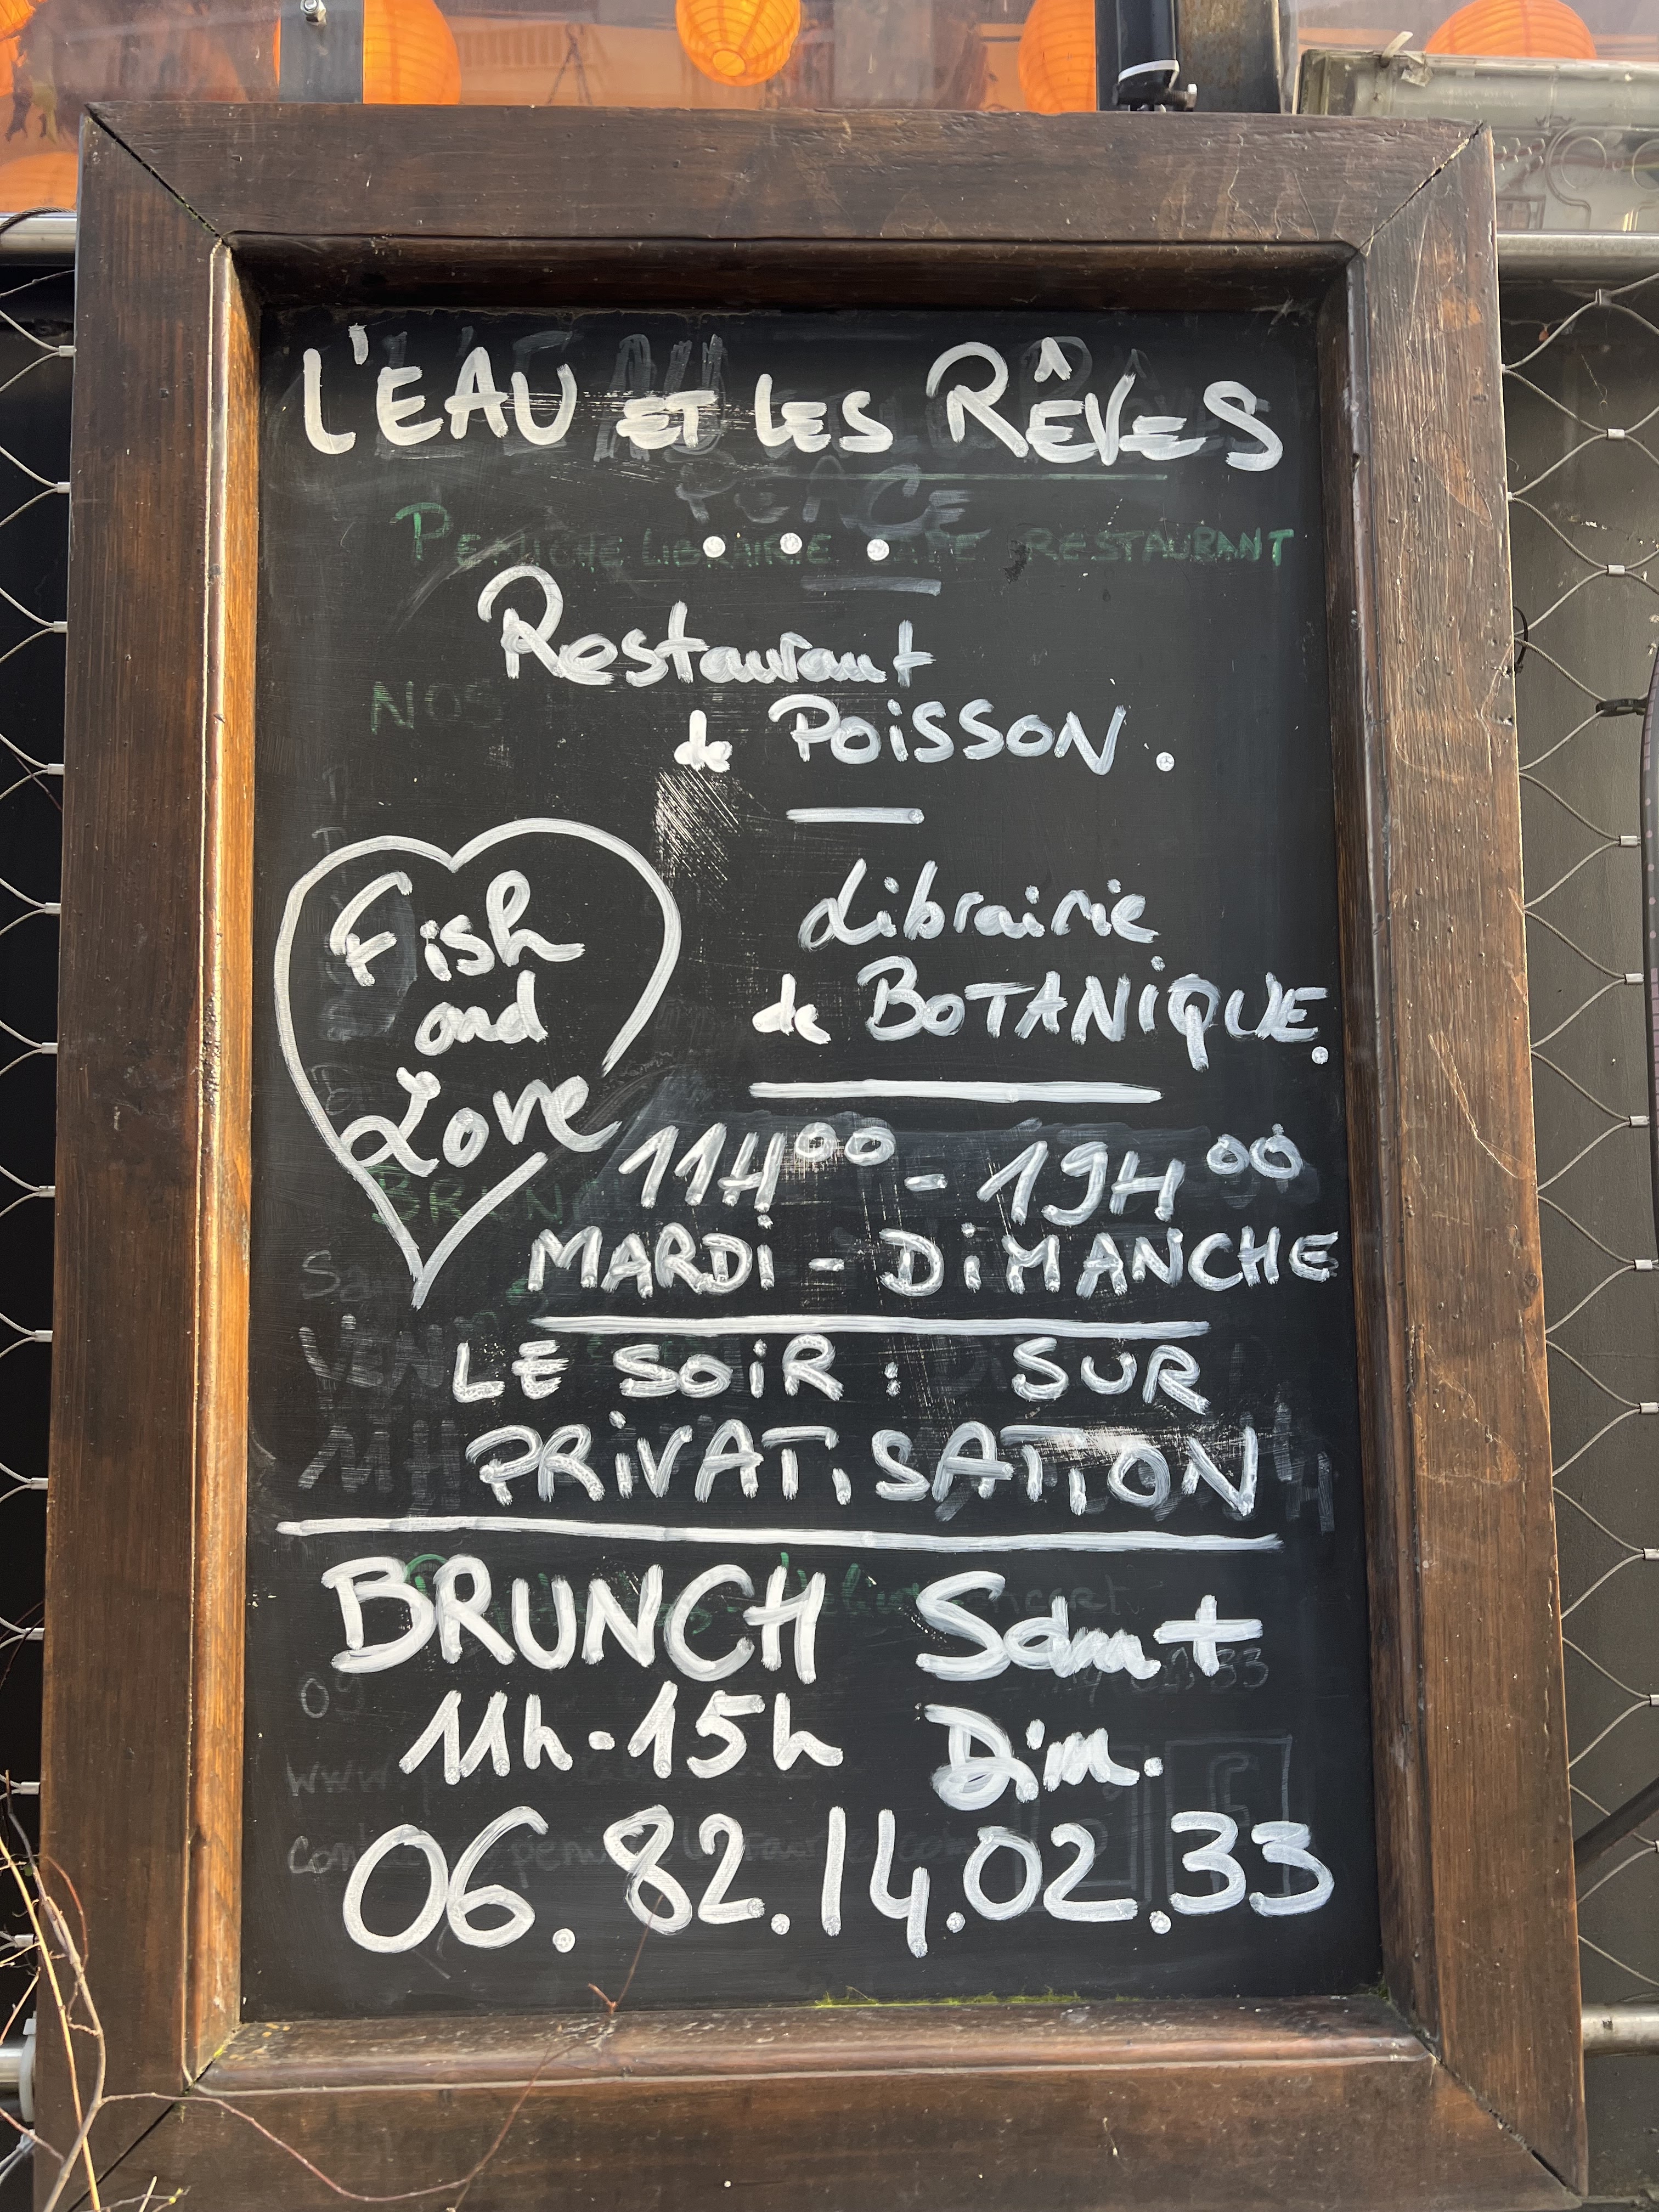 L'EAU ET LES RÊVES
PEACE
PENICHE LIBRAIRIE CAFE RESTAURANT
Restaurant
de POISSON.
NOS
Fish
and
Love
Librairie
de BOTANIQUE.
11H00 - 19H00
MARDI - DIMANCHE
LE SOIR : SUR
PRIVATISATION
BRUNCH Sam +
11h - 15h Dim.
06.82.14.02.33